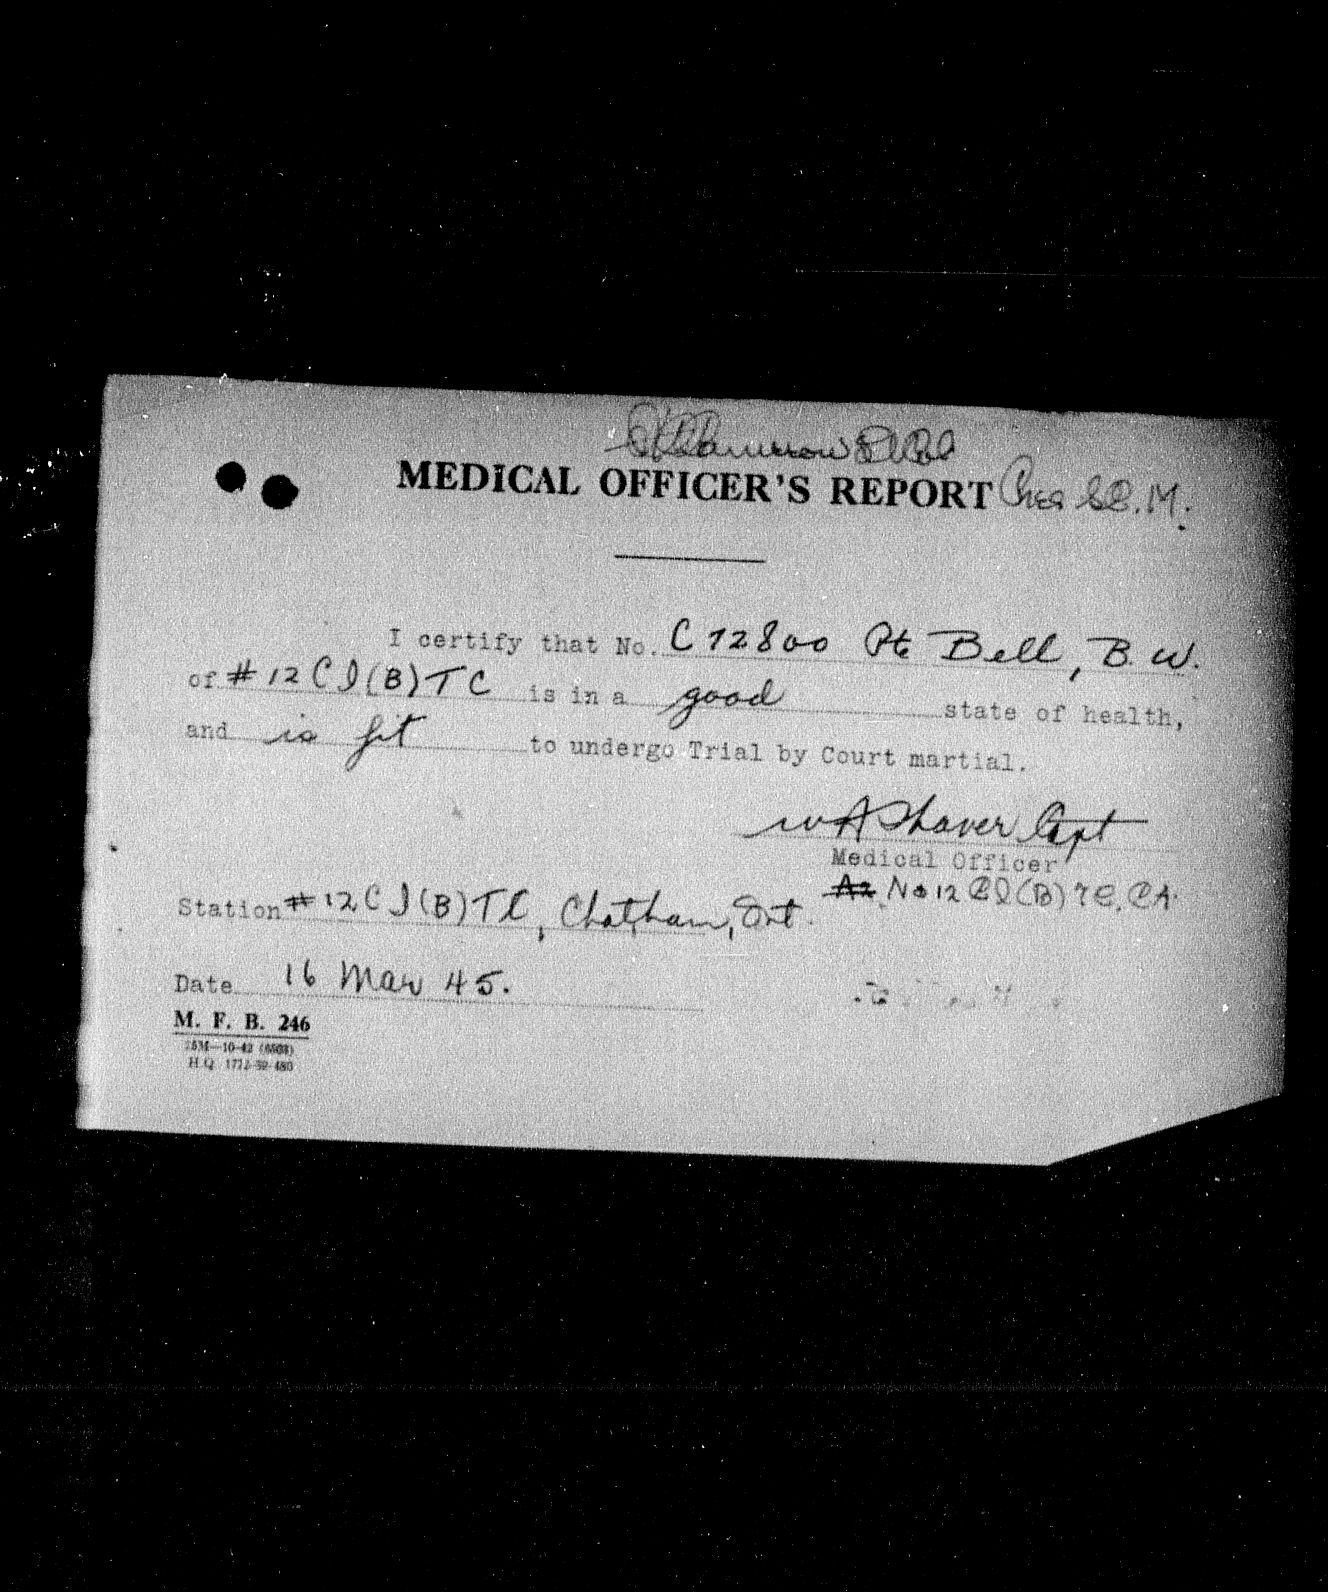 MEDICAL OFFICER'S REPORT Pres S.C.M.
I certify that No. C 72800 Pte Bell, B. W.
of #12 C I (B) T C is in a good state of health,
and is fit to undergo Trial by Court martial.
W A Shaver Capt
Medical Officer
No 12 C I (B) T C, C A.
Station #12 C I (B) T C, Chatham, Ont.
Date 16 Mar 45.
M. F. B. 246
H.Q. 1772-39-480